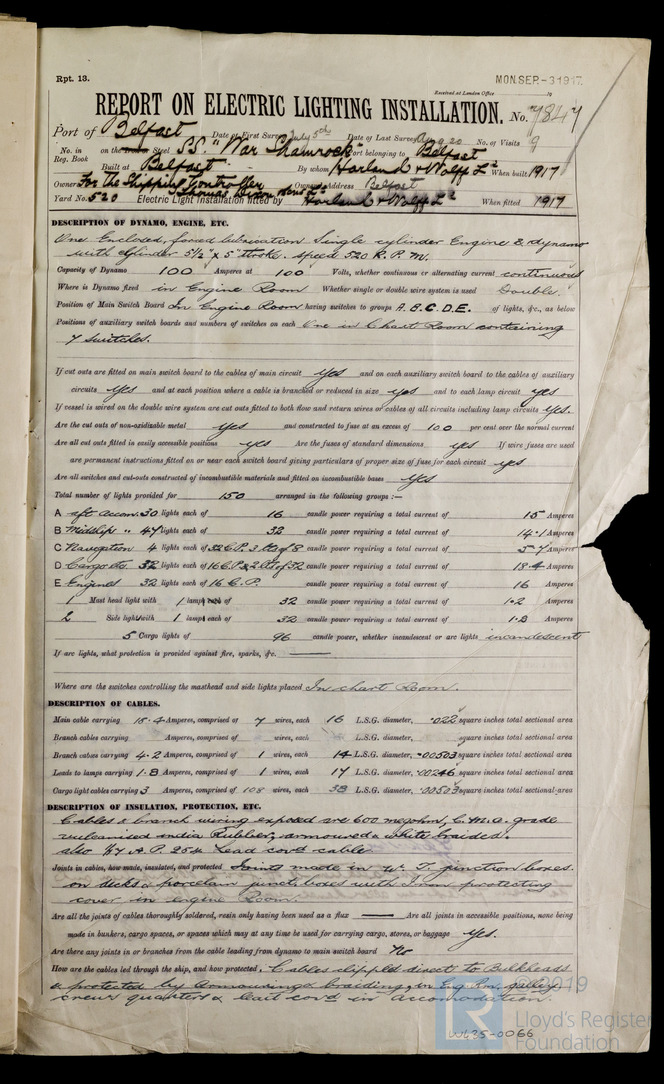 Rpt. 13.
MON.SEP.-3 1917
Received at London Office
REPORT ON ELECTRIC LIGHTING INSTALLATION. No. 7847
Port of Belfast Date of First Survey July 5th Date of Last Survey Aug 20 No. of Visits 9
No. in Reg. Book on the Iron Steel S.S. "War Shamrock" Port belonging to Belfast
Built at Belfast By whom Harland & Wolff Ld When built 1917
Owners For The Shipping Controller Owners Address Belfast
Thomas Dixon
Yard No. 520 Electric Light Installation fitted by Harland & Wolff Ld When fitted 1917
DESCRIPTION OF DYNAMO, ENGINE, ETC.
One Enclosed, forced lubrication Single cylinder Engine & dynamo
with cylinder 5½" x 5" stroke. speed 520 R.P.M.
Capacity of Dynamo 100 Amperes at 100 Volts, whether continuous or alternating current continuous
Where is Dynamo fixed in Engine Room Whether single or double wire system is used Double.
Position of Main Switch Board In Engine Room having switches to groups A.B.C.D.E. of lights, &c., as below
Positions of auxiliary switch boards and numbers of switches on each One in Chart Room containing
7 switches.
If cut outs are fitted on main switch board to the cables of main circuit yes and on each auxiliary switch board to the cables of auxiliary
circuits yes and at each position where a cable is branched or reduced in size yes and to each lamp circuit yes
If vessel is wired on the double wire system are cut outs fitted to both flow and return wires or cables of all circuits including lamp circuits yes.
Are the cut outs of non-oxidizable metal yes and constructed to fuse at an excess of 100 per cent over the normal current
Are all cut outs fitted in easily accessible positions yes Are the fuses of standard dimensions yes If wire fuses are used
are permanent instructions fitted on or near each switch board giving particulars of proper size of fuse for each circuit yes
Are all switches and cut-outs constructed of incombustible materials and fitted on incombustible bases yes
Total number of lights provided for 150 arranged in the following groups :—
A Aft Accom. 30 lights each of 16 candle power requiring a total current of 15 Amperes
B Midships " 47 lights each of 32 candle power requiring a total current of 14.1 Amperes
C Navigation 4 lights each of 32 C.P. 3 Lts of 8 candle power requiring a total current of 5.7 Amperes
D Cargo etc 32 lights each of 16 C.P. & 2 Lts of 32 candle power requiring a total current of 18.4 Amperes
E Engines 32 lights each of 16 C.P. candle power requiring a total current of 16 Amperes
1 Mast head light with 1 lamp each of 32 candle power requiring a total current of 1.2 Amperes
2 Side light with 1 lamp each of 32 candle power requiring a total current of 1.8 Amperes
5 Cargo lights of 96 candle power, whether incandescent or arc lights incandescent
If arc lights, what protection is provided against fire, sparks, &c. —
Where are the switches controlling the masthead and side lights placed In chart Room.
DESCRIPTION OF CABLES.
Main cable carrying 18.4 Amperes, comprised of 7 wires, each 16 L.S.G. diameter, .022 square inches total sectional area
Branch cables carrying Amperes, comprised of wires, each L.S.G. diameter, square inches total sectional area
Branch cables carrying 4.2 Amperes, comprised of 1 wires, each 14 L.S.G. diameter, .00503 square inches total sectional area
Leads to lamps carrying 1.8 Amperes, comprised of 1 wires, each 17 L.S.G. diameter, .00246 square inches total sectional area
Cargo light cables carrying 3 Amperes, comprised of 108 wires, each 38 L.S.G. diameter, .00503 square inches total sectional area
DESCRIPTION OF INSULATION, PROTECTION, ETC.
Cables & branch wiring exposed are 600 megohm, C.M.A. grade
vulcanised india Rubber, armoured & white braided.
also Lead cov'd cable
Joints in cables, how made, insulated, and protected Joints made in W. T. junction boxes.
on decks & porcelain junct. boxes with Iron protecting
cover in engine Room.
Are all the joints of cables thoroughly soldered, resin only having been used as a flux — Are all joints in accessible positions, none being
made in bunkers, cargo spaces, or spaces which may at any time be used for carrying cargo, stores, or baggage yes.
Are there any joints in or branches from the cable leading from dynamo to main switch board No
How are the cables led through the ship, and how protected. Cables clipped direct to Bulkheads
& protected by Armouring & braiding, in Eng Rm. galley
crews quarters & lead cov'd in accomodation.
©2019
LR Lloyd's Register
Foundation
W635-0066